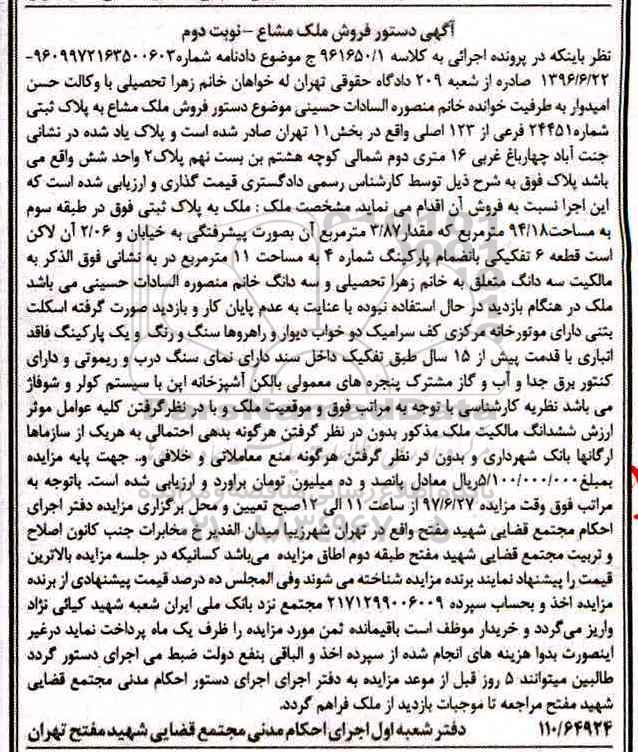 آگهی دستور فروش ملک مشاع -نوبت دوم
نظر باینکه در پرونده اجرائی به کلاسه ۹۶۱۶۵۰/۱ ج موضوع دادنامه شماره۹۶۰۹۹۷۲۱۶۳۵۰۰۶۰۳-
۱۳۹۶/۶/۲۲ صادره از شعبه ۲۰۹ دادگاه حقوقی تهران له خواهان خانم زهرا تحصیلی با وکالت حسن
امیدوار به طرفیت خوانده خانم منصوره السادات حسینی موضوع دستور فروش ملک مشاع به پلاک ثبتی
شماره۲۴۴۵۱ فرعی از ۱۲۳ اصلی واقع در بخش۱۱ تهران صادر شده است و پلاک یاد شده در نشانی
جنت آباد چهارباغ غربی ۱۶ متری دوم شمالی کوچه هشتم بن بست نهم پلاک۲ واحد شش واقع می
باشد پلاک فوق به شرح ذیل توسط کارشناس رسمی دادگستری قیمت گذاری و ارزیابی شده است که
این اجرا نسبت به فروش آن اقدام می نماید. مشخصت ملک : ملک به پلاک ثبتی فوق در طبقه سوم
به مساحت۹۴/۱۸ مترمربع که مقدار۳/۸۷ مترمربع آن بصورت پیشرفتگی به خیابان و ۲/۰۶ آن لاکن
است قطعه ۶ تفکیکی بانضمام پارکینگ شماره ۴ به مساحت ۱۱ مترمربع در به نشانی فوق الذکر به
مالکیت سه دانگ متعلق به خانم زهرا تحصیلی و سه دانگ خانم منصوره السادات حسینی می باشد
ملک در هنگام بازدید در حال استفاده نبوده با عنایت به عدم پایان کار و بازدید صورت گرفته اسکلت
بتنی دارای موتورخانه مرکزی کف سرامیک دو خواب دیوار و راهروها سنگ و رنگ و یک پارکینگ فاقد
انباری با قدمت پیش از ۱۵ سال طبق تفکیک داخل سند دارای نمای سنگ درب و ریموتی و دارای
کنتور برق جدا و آب و گاز مشترک پنجره های معمولی بالکن آشپزخانه اپن با سیستم کولر و شوفاژ
می باشد نظریه کارشناسی با توجه به مراتب فوق و موقعیت ملک و با در نظرگرفتن کلیه عوامل موثر
ارزش ششدانگ مالکیت ملک مذکور بدون در نظر گرفتن هرگونه بدهی احتمالی به هریک از سازماها
ارگانها بانک شهرداری و بدون در نظر گرفتن هرگونه منع معاملاتی و خلافی و.. جهت پایه مزایده
بمبلغ۵/۱۰۰/۰۰۰/۰۰۰ریال معادل پانصد و ده میلیون تومان براورد و ارزیابی شده است. باتوجه به
مراتب فوق وقت مزایده ۹۷/۶/۲۷ از ساعت ۱۱ الی ۱۲صبح تعیین و محل برگزاری مزایده دفتر اجرای
احکام مجتمع قضایی شهید مفتح واقع در تهران شهرزیبا میدان الغدیر خ مخابرات جنب کانون اصلاح
و تربیت مجتمع قضایی شهید مفتح طبقه دوم اطاق مزایده می‌باشد کسانیکه در جلسه مزایده بالاترین
قیمت را پیشنهاد نمایند برنده مزایده شناخته می شوند وفی المجلس ده درصد قیمت پیشنهادی از برنده
مزایده اخذ و بحساب سپرده ۲۱۷۱۲۹۹۰۰۶۰۰۹ مجتمع نزد بانک ملی ایران شعبه شهید کیائی نژاد
واریز می‌گردد و خریدار موظف است باقیمانده ثمن مورد مزایده را ظرف یک ماه پرداخت نماید درغیر
اینصورت بدوا هزینه های انجام شده از سپرده اخذ و الباقی بنفع دولت ضبط می اجرای دستور گردد
طالبین میتوانند ۵ روز قبل از موعد مزایده به دفتر اجرای اجرای دستور احکام مدنی مجتمع قضایی
شهید مفتح مراجعه تا موجبات بازدید از ملک فراهم گردد.
۱۱۰/۶۴۹۲۴ دفتر شعبه اول اجرای احکام مدنی مجتمع قضایی شهید مفتح تهران